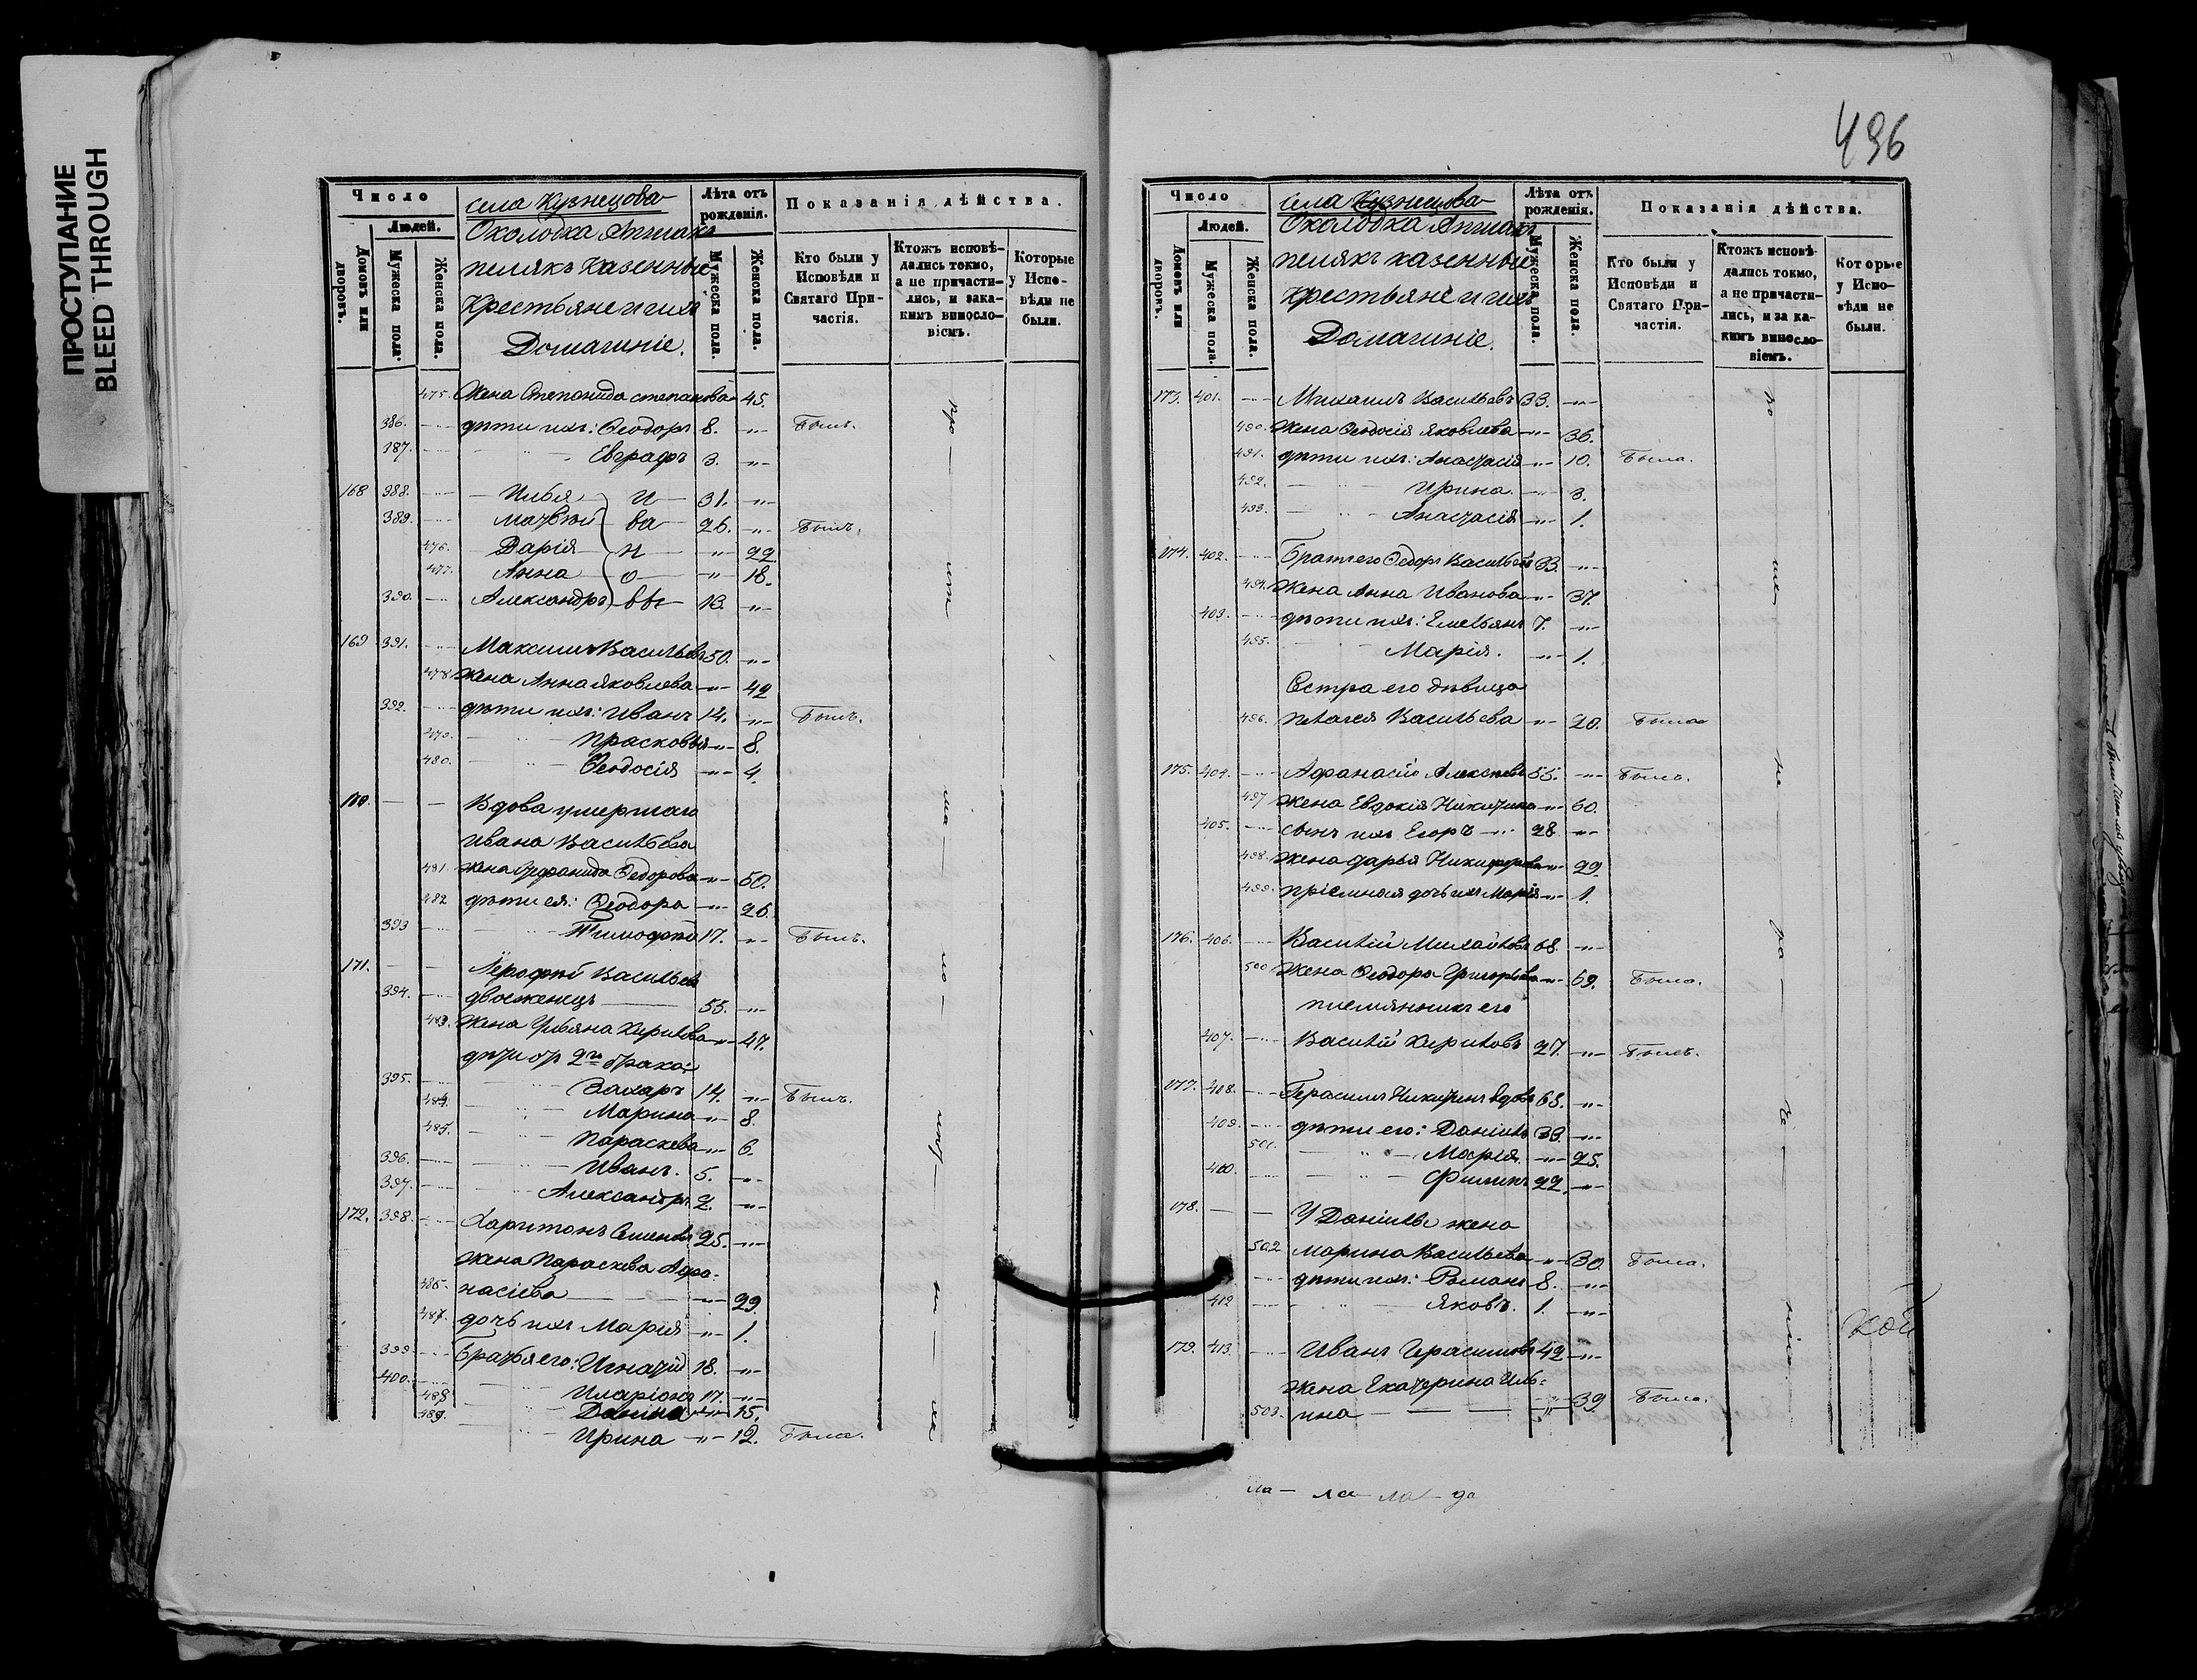 ПРОСТУПАНИЕ
BLEED THROUGH
Число
Людей.
Домовъ или дворовъ.
Мужеска пола.
Женска пола.
села Кузнецова
Околодка
казенные
Крестьяне и ихъ
Домашніе.
Лѣта отъ рожденія.
Мужеска пола.
Женска пола.
Показанія дѣйства.
Кто были у Исповѣди и Святаго Причастія.
Ктожъ исповѣдались токмо, а не причастились, и за какимъ винословіемъ.
Которые у Исповѣди не были.
475. Жена Степанида Степанова 45.
386. дѣти ихъ: Ѳеодоръ 8. -"- Былъ.
387. Евграфъ 3. -"-
168 388. Илья И 31. -"-
389. Матвѣй ва 26. -"- Былъ.
476. Дарія н -"- 22
477. Анна о -"- 18.
390. Александръ вы 13. -"-
169 391. Максимъ Васильевъ 50. -"-
478 Жена Анна Яковлева -"- 42
392. дѣти ихъ: Иванъ 14. -"- Былъ.
479. Прасковья -"- 8.
480. Ѳеодосія -"- 4.
170. Вдова умершаго
Ивана Васильева
481. жена Ѳедорова -"- 50.
482 дѣти ея: Ѳеодора -"- 26.
393 Тимофей 17. -"- Былъ.
171. Ерофей Васильевъ
394. двоеженецъ 55. -"-
483. Жена Ульяна Кирилова -"- 47.
дѣти от 2го брака:
395. Захаръ 14. -"- Былъ.
484. Марина -"- 8.
485. Параскева -"- 6.
396. Иванъ. 5. -"-
397. Александръ 2. -"-
172. 398. Харитонъ Семеновъ 25. -"-
жена Параскева Афа-
486. насіева -"- 29.
487. дочь ихъ Марія -"- 1.
399 Братья его: Игнатій 18. -"-
400. Иларіонъ 17. -"-
488 -"- 15.
489. Ирина -"- 12. Была.
436
Число
Людей.
Домовъ или дворовъ.
Мужеска пола.
Женска пола.
села Кузнецова
Околодка
казенные
Крестьяне и ихъ
Домашніе.
Лѣта отъ рожденія.
Мужеска пола.
Женска пола.
Показанія дѣйства.
Кто были у Исповѣди и Святаго Причастія.
Ктожъ исповѣдались токмо, а не причастились, и за какимъ винословіемъ.
Которые у Исповѣди не были.
173. 401. Михаилъ Васильевъ 33. -"-
490. Жена Ѳеодосія Яковлева -"- 36.
491. дѣти ихъ: Анастасія -"- 10. Была.
492. Ирина. -"- 3.
493. Анастасія -"- 1.
174. 402. Братъ его Ѳедоръ Васильевъ 33. -"-
494. Жена Анна Иванова -"- 37.
403. дѣти ихъ: Емельянъ 7. -"-
495. Марія. -"- 1.
Сестра его дѣвица
496. Пелагея Васильева -"- 20. Была
175. 404. Афанасій Алексѣевъ 55. -"- Былъ.
497 жена Евдокія Никитина -"- 60.
405. сынъ ихъ Егоръ 28. -"-
498. жена Дарья Никифорова -"- 29.
499. пріемная дочь ихъ Марія -"- 1.
176. 406. Василій Михайловъ 68. -"-
500 Жена Ѳеодора Григорьева -"- 69. Была.
племянникъ его
407. Василій Кириловъ 27. -"- Былъ.
177. 408. Герасимъ Никитинъ вдовъ 63. -"-
409. дѣти его: Даніилъ 33. -"-
501. Марія -"- 25.
410. Филипъ 22. -"-
178. У Даніила жена
502 Марина Васильева -"- 30. Была.
дѣти ихъ: Романъ 8. -"-
412 Яковъ. 1. -"-
179. 413. Иванъ Герасимовъ 42 -"-
жена Екатерина Иль-
503. ина -"- 39 Была.
кой
ла - ла - ла - да